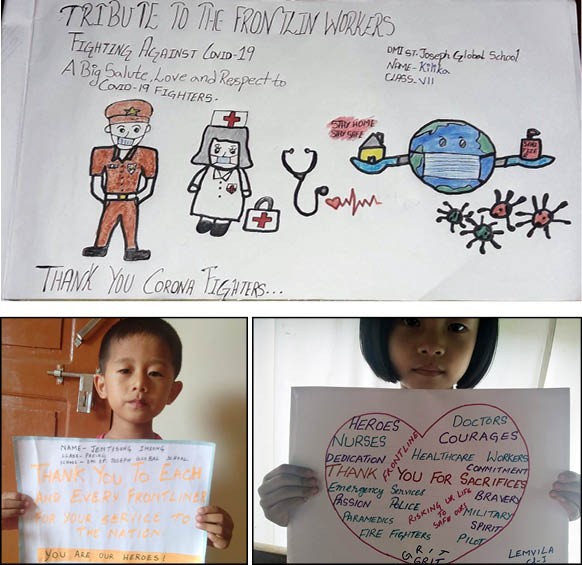 TRIBUTE TO THE FRONTLIN WORKERS
FIGHTING AGAINST COVID-19
A Big Salute, Love and Respect to
COVID-19 FIGHTERS.
DMI ST. Joseph Global School
NAME- Kilika
CLASS- VII
STAY HOME
STAY SAFE
THANK YOU CORONA FIGHTERS...
NAME- JENTISUNG IMSONG
SCHOOL- DMI ST. JOSEPH GLOBAL SCHOOL
THANK YOU TO EACH
AND EVERY FRONTLINER
FOR YOUR SERVICE TO
THE NATION.
YOU ARE OUR HEROES!
HEROES
DOCTORS
NURSES
COURAGES
FRONTLINE
DEDICATION
HEALTHCARE WORKERS
COMMITMENT
THANK YOU FOR SACRIFICES
Emergency Services
BRAVERY
PASSION
POLICE
RISKING UR LIFE
TO
SAFE OUR
MILITARY
PARAMEDICS
SPIRIT
FIRE FIGHTERS
PILOT
GRIT
LEMVILA
Cl-I